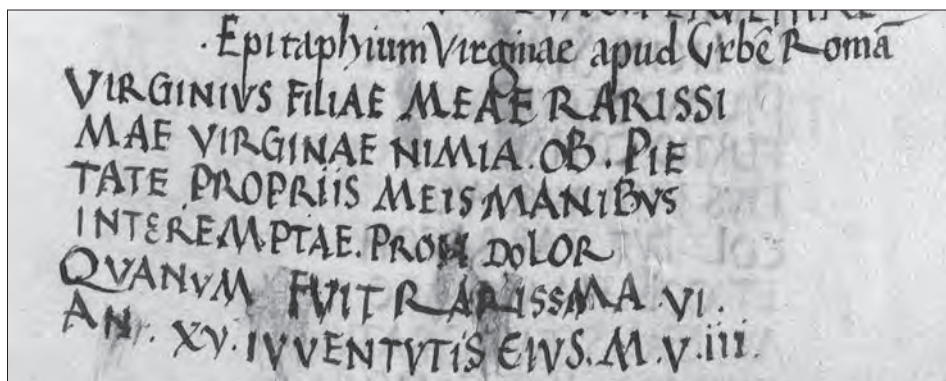 . Epitaphium Virginae apud Urbē Romā
VIRGINIVS FILIAE MEAE RARISSI
MAE VIRGINAE NIMIA . OB . PIE
TATE PROPRIIS MEIS MANIBVS
INTEREMPTAE . PROH DOLOR
QVANVM FVIT RARISSMA VI .
AN . XV . IVVENTVTIS EIVS . M . V . III .